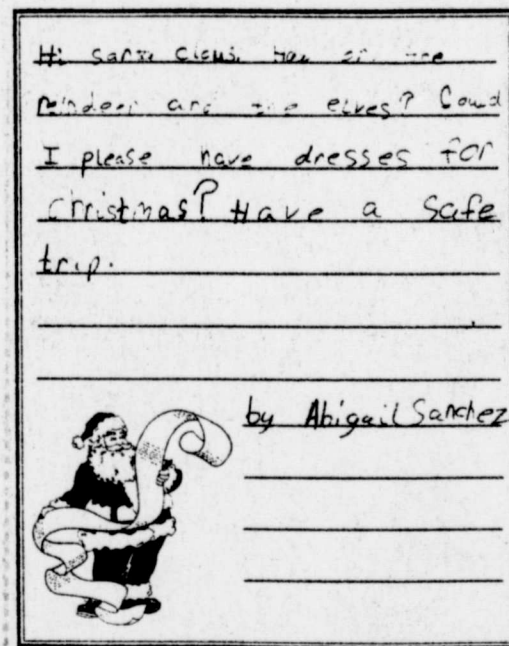 Hi Santa Claus. How are the
reindeer and the elves? Could
I please have dresses for
Christmas? Have a safe
trip.
by Abigail Sanchez